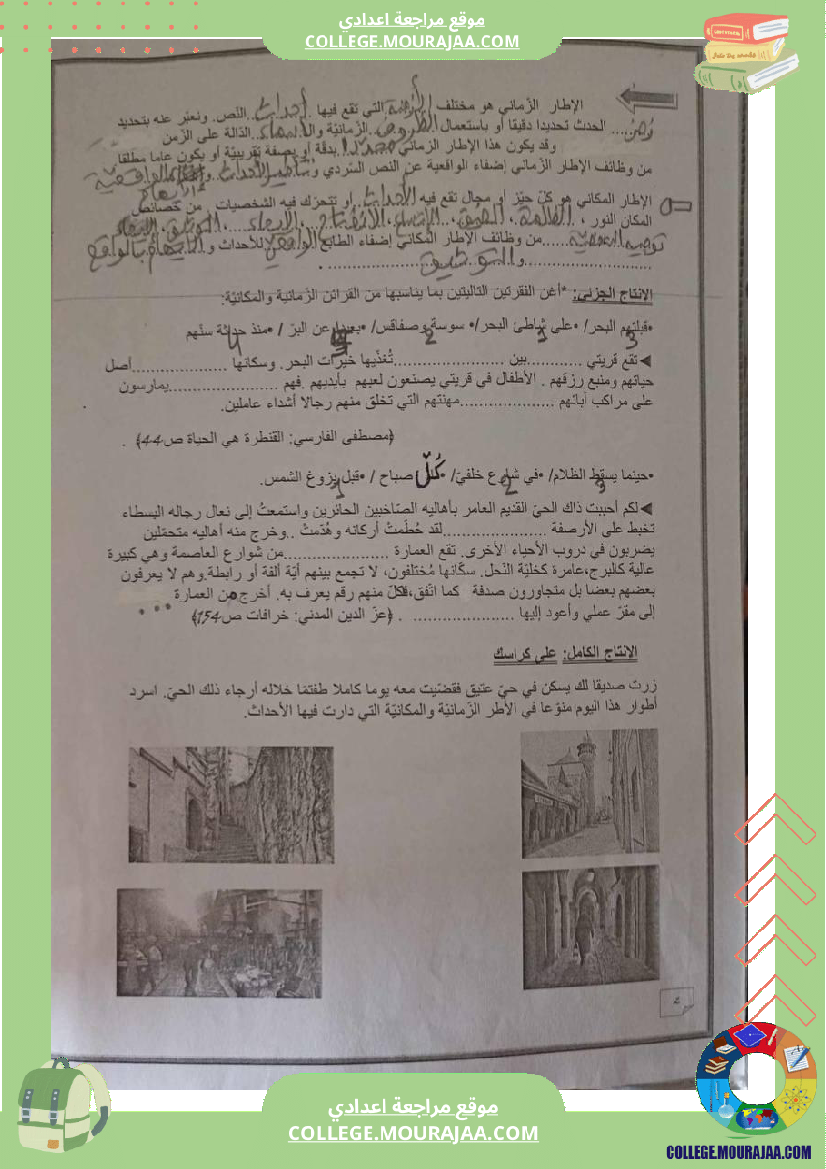 موقع مراجعة اعدادي
COLLEGE.MOURAJAA.COM
الإطار الزّماني هو مختلف الأزمنة التي تقع فيها أحداث النّص. ونعبّر عنه بتحديد
زمن الحدث تحديدا دقيقا أو باستعمال الظروف الزّمانيّة والأسماء الدّالة على الزّمن
وقد يكون هذا الإطار الزماني محددا بدقّة أو بصفة تقريبيّة أو يكون عاما مطلقا
من وظائف الإطار الزّماني إضفاء الواقعية عن النص السّردي و
الإطار المكاني هو كلّ حيّز أو مجال تقع فيه الأحداث أو تتحرّك فيه الشخصيات. من خصائص
المكان النور ، الظلمة، الضيق، الاتساع، الانفتاح،
من وظائف الإطار المكاني إضفاء الطابع الواقعي للأحداث و الإيهام بالواقع
و التشويق
الإنتاج الجزئي: *أغن الفقرتين التاليتين بما يناسبها من القرائن الزّمانية والمكانيّة:
•قبلتهم البحر/ •على شاطئ البحر/• سوسة وصفاقس/ •بعيدا عن البرّ / •منذ حداثة سنّهم
3 2 4
◀تقع قريتي ............بين ........................تُغذّيها خيرات البحر. وسكانها ...................أصل
حياتهم ومنبع رزقهم . الأطفال في قريتي يصنعون لعبهم بأيديهم .فهم ......................يمارسون
على مراكب آبائهم ...................مهنتهم التي تخلق منهم رجالا أشداء عاملين.
(مصطفى الفارسي: القنطرة هي الحياة ص44) .
•حينما يسقط الظلام/ •في شارع خلفيّ/ •كُلّ صباح / •قبل بزوغ الشمس.
3 2 1
◀لكم أحببت ذاك الحيّ القديم العامر بأهاليه الصّاخبين الحائرين واستمعتُ إلى نعال رجاله البسطاء
تخبط على الأرصفة .....................لقد حُطّمتْ أركانه وهُدّمتْ ..وخرج منه أهاليه متحمّلين
يضربون في دروب الأحياء الأخرى. تقع العمارة .....................من شوارع العاصمة وهي كبيرة
عالية كالبرج،عامرة كخليّة النّحل. سكّانها مُختلفون، لا تجمع بينهم أيّة ألفة أو رابطة.وهم لا يعرفون
بعضهم بعضا بل متجاورون صدفة كما اتّفق،فكلّ منهم رقم يعرف به. أخرج من العمارة ...
إلى مقرّ عملي وأعود إليها .................... . (عزّ الدين المدني: خرافات ص154)
الإنتاج الكامل: على كراسك
زرت صديقا لك يسكن في حيّ عتيق فقضّيت معه يوما كاملا طفتما خلاله أرجاء ذلك الحيّ. اسرد
أطوار هذا اليوم منوّعا في الأطر الزّمانيّة والمكانيّة التي دارت فيها الأحداث.
2
موقع مراجعة اعدادي
COLLEGE.MOURAJAA.COM
COLLEGE.MOURAJAA.COM